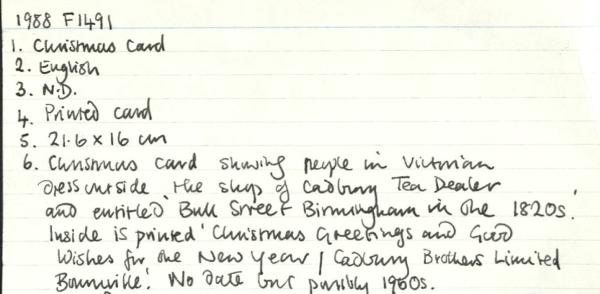 1988 F1491
1. Christmas Card
2. English
3. N.D.
4. Printed card
5. 21.6 x 16 cm
6. Christmas card showing people in Victorian
dress outside the shop of Cadbury Tea Dealer
and entitled 'Bull Street Birmingham in the 1820s.'
Inside is printed 'Christmas Greetings and Good
Wishes for the New Year / Cadbury Brothers Limited
Bournville'. No date but possibly 1960s.